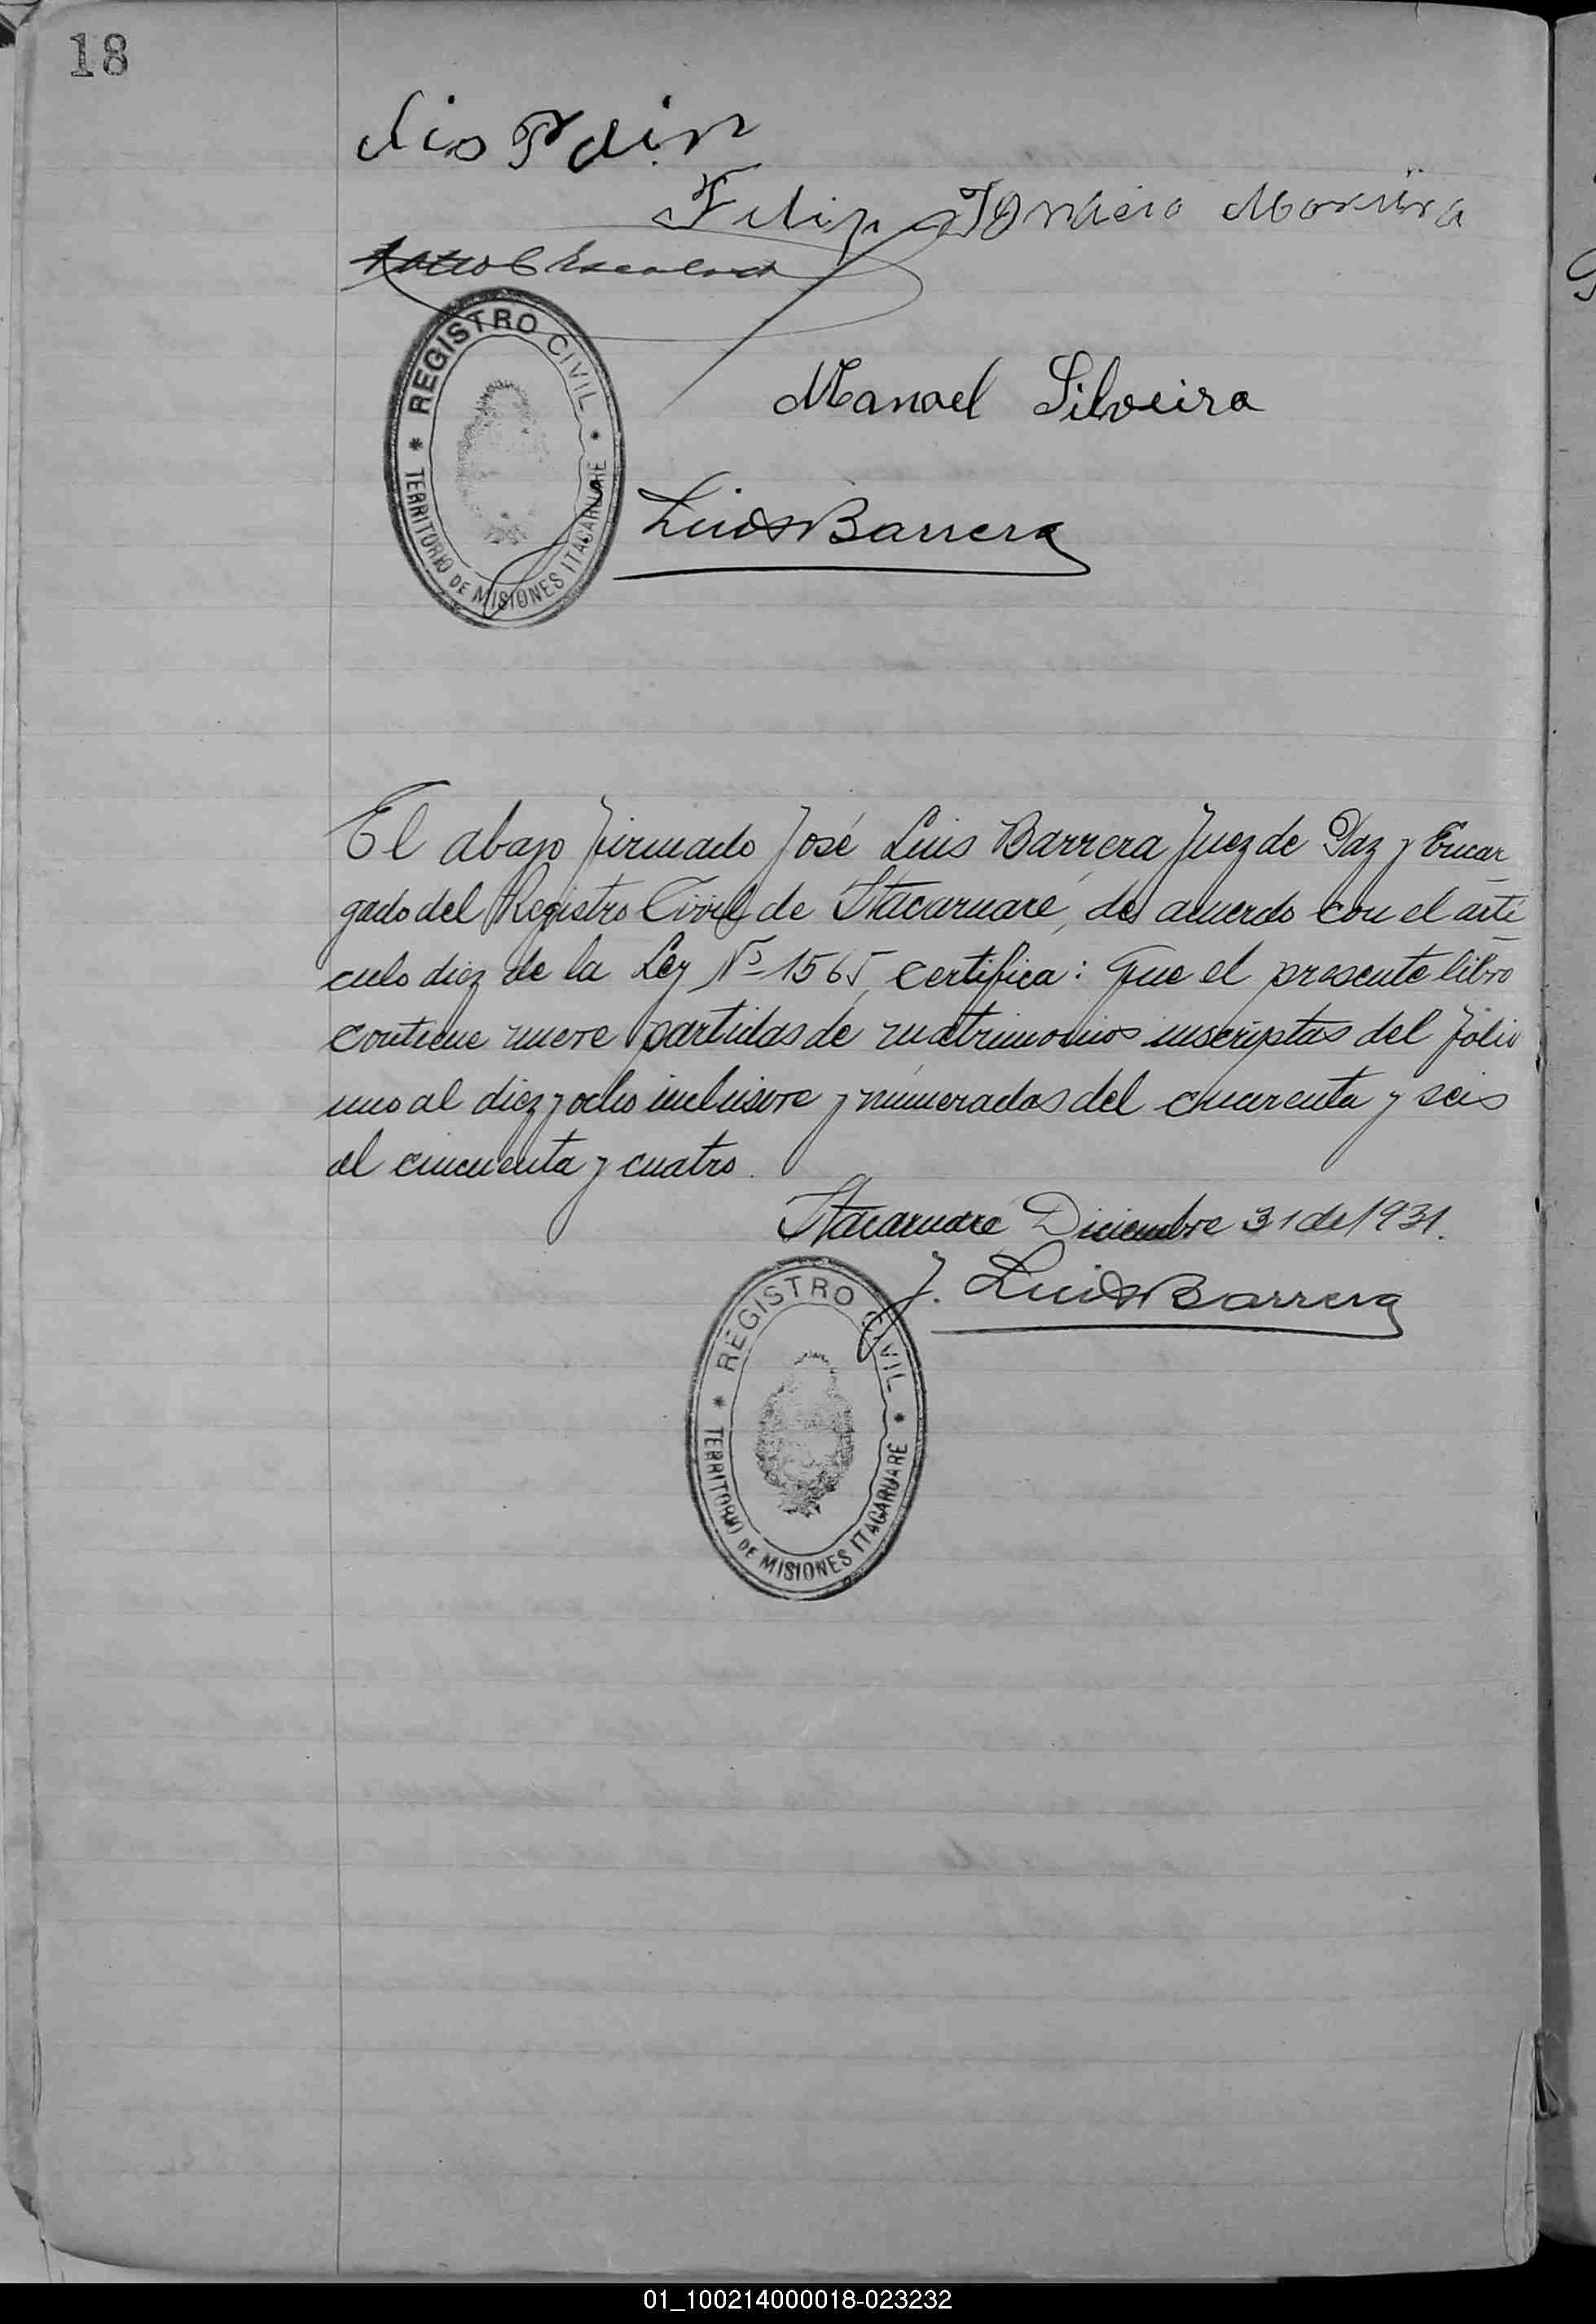 18
Ignacio
Manoel Silveira
REGISTRO CIVIL
TERRITORIO DE MISIONES ITACARUARE
Luis Barrera
El abajo firmado José Luis Barrera Juez de Paz y Encar
gado del Registro Civil de Itacaruaré, de acuerdo con el artí
culo diez de la Ley Nº 1565, certifica: Que el presente libro
contiene nueve partidas de matrimonios inscriptas del folio
uno al diez y ocho inclusive y numeradas del cuarenta y seis
al cincuenta y cuatro.
Itacaruaré Diciembre 31 de 1931.
J. Luis Barrera
REGISTRO CIVIL
TERRITORIO DE MISIONES ITACARUARE
01_100214000018-023232